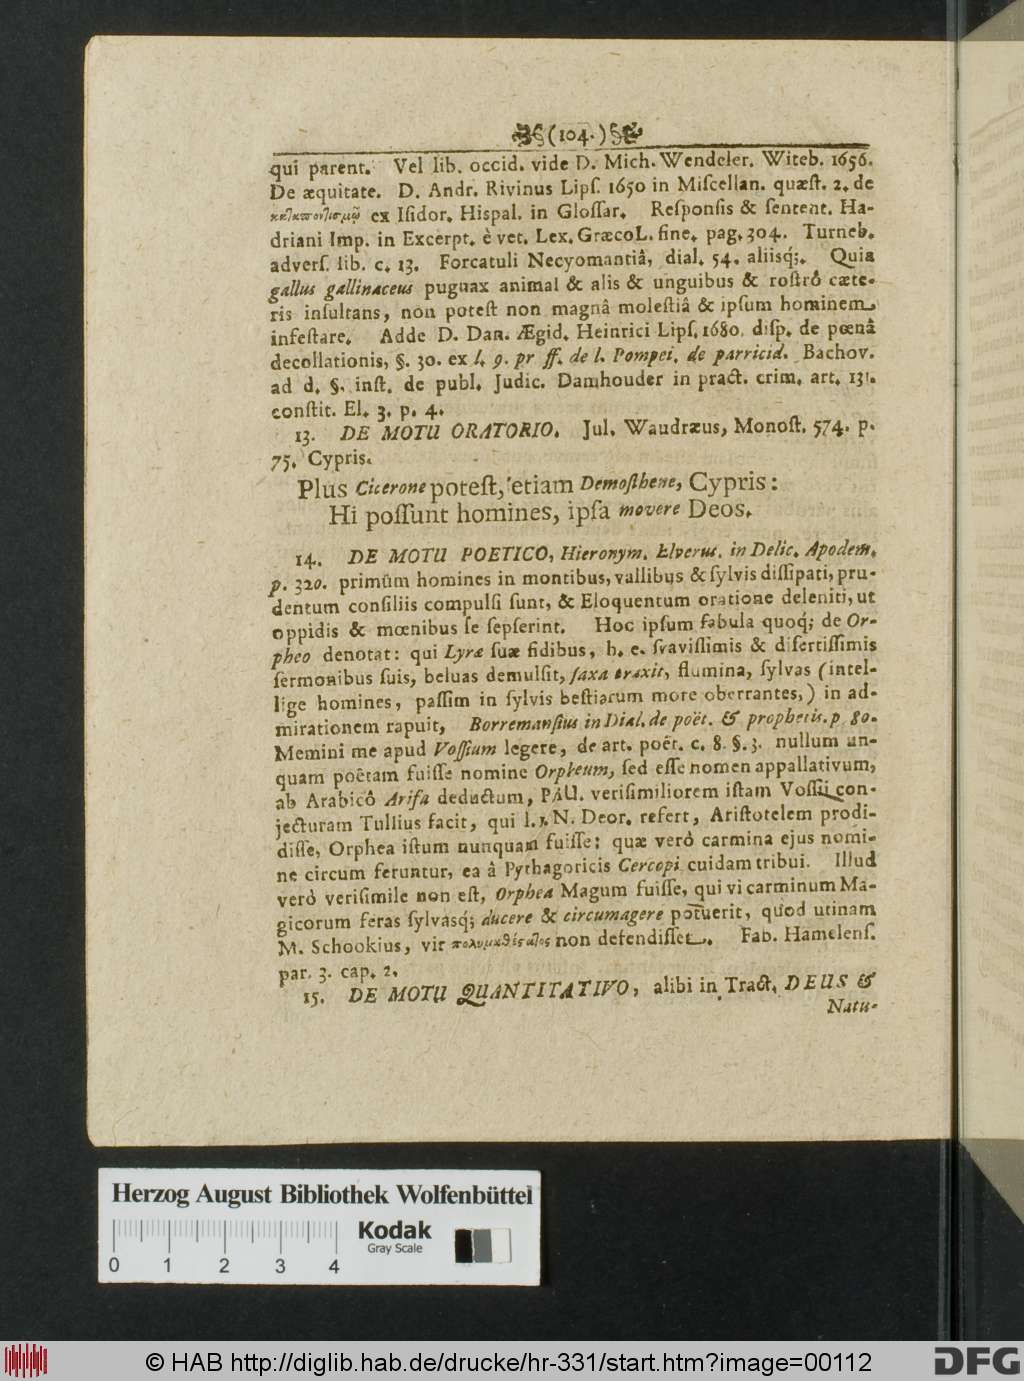 (104.)
qui parent. Vel lib. occid. vide D. Mich. Wendeler. Witeb. 1656.
De æquitate. D. Andr. Rivinus Lipſ. 1650 in Miſcellan. quæſt. 2. de
ex Iſidor. Hiſpal. in Gloſſar. Reſponſis & ſentent. Ha-
driani Imp. in Excerpt. è vet. Lex. GræcoL. fine. pag. 304. Turneb.
adverſ. lib. c. 13. Forcatuli Necyomantiâ, dial. 54. aliisq́;. Quia
gallus gallinaceus pugnax animal & alis & unguibus & roſtrô cæte-
ris inſultans, non poteſt non magnâ moleſtiâ & ipſum hominem
infeſtare. Adde D. Dan. Ægid. Heinrici Lipſ. 1680. diſp. de pœnâ
decollationis, §. 30. ex l. 9. pr ff. de l. Pompei. de parricid. Bachov.
ad d. §. inſt. de publ. Judic. Damhouder in pract. crim. art. 131.
conſtit. El. 3. p. 4.
13. DE MOTU ORATORIO. Jul. Waudræus, Monoſt. 574. p.
75. Cypris.
Plus Cicerone poteſt, etiam Demoſthene, Cypris:
Hi poſſunt homines, ipſa movere Deos.
14. DE MOTU POETICO, Hieronym. Elverus. in Delic. Apodem.
p. 320. primùm homines in montibus, vallibus & ſylvis diſſipati, pru-
dentum conſiliis compulſi ſunt, & Eloquentum oratione deleniti, ut
oppidis & mœnibus ſe ſepſerint. Hoc ipſum fabula quoq́; de Or-
pheo denotat: qui Lyræ ſuæ fidibus, h. e. ſvaviſſimis & diſertiſſimis
ſermonibus ſuis, beluas demulſit, ſaxa traxit, flumina, ſylvas (intel-
lige homines, paſſim in ſylvis beſtiarum more oberrantes,) in ad-
mirationem rapuit, Borremanſius in Dial. de poët. & prophetis. p 80.
Memini me apud Voſſium legere, de art. poët. c. 8. §. 3. nullum un-
quam poëtam fuiſſe nomine Orpheum, ſed eſſe nomen appallativum,
ab Arabicô Arifa deductum, PAU. veriſimiliorem iſtam Voſſii con-
jecturam Tullius facit, qui l. 1. N. Deor. refert, Ariſtotelem prodi-
diſſe, Orphea iſtum nunquam fuiſſe: quæ verò carmina ejus nomi-
ne circum feruntur, ea â Pythagoricis Cercopi cuidam tribui. Illud
verò veriſimile non eſt, Orphea Magum fuiſſe, qui vi carminum Ma-
gicorum feras ſylvasq́; ducere & circumagere potuerit, quod utinam
M. Schookius, vir non defendiſſet. Fab. Hamelenſ.
par. 3. cap. 2.
15. DE MOTU QUANTITATIVO, alibi in Tract. DEUS &
Natu-
Herzog August Bibliothek Wolfenbüttel
Kodak
Gray Scale
0 1 2 3 4
© HAB http://diglib.hab.de/drucke/hr-331/start.htm?image=00112
DFG